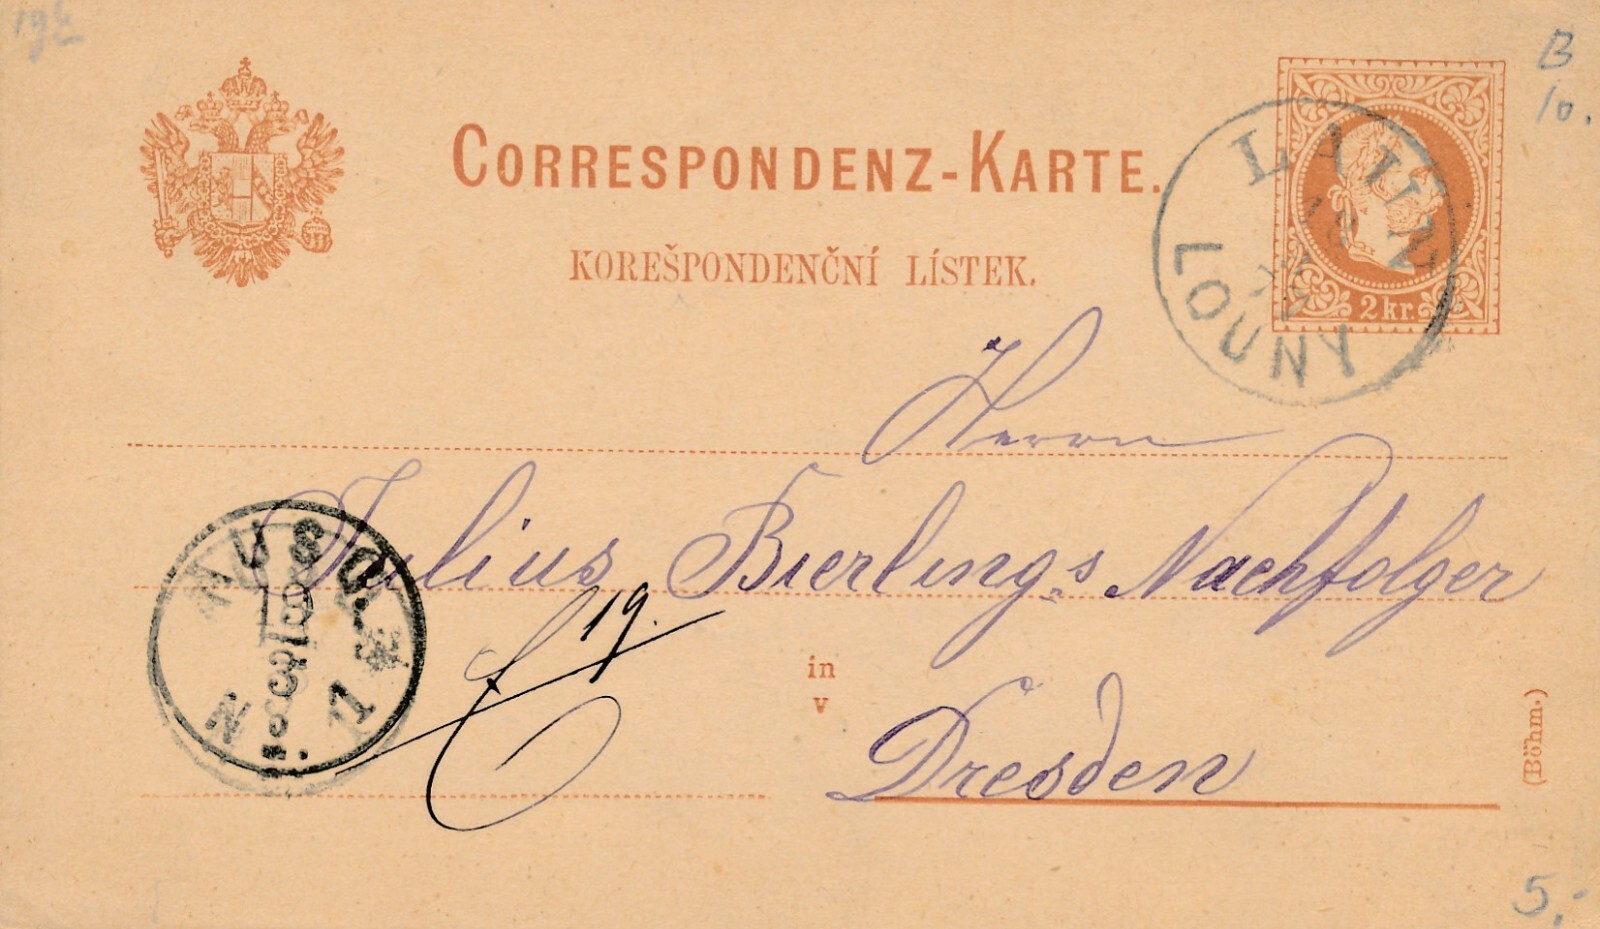 B
10.
CORRESPONDENZ-KARTE.
KOREŠPONDENČNÍ LÍSTEK.
LAUN
LOUNY
2 kr.
Herrn
Julius Bierlings Nachfolger
19.
in
v
Dresden
(Böhm.)
AUSG.
N
5.-